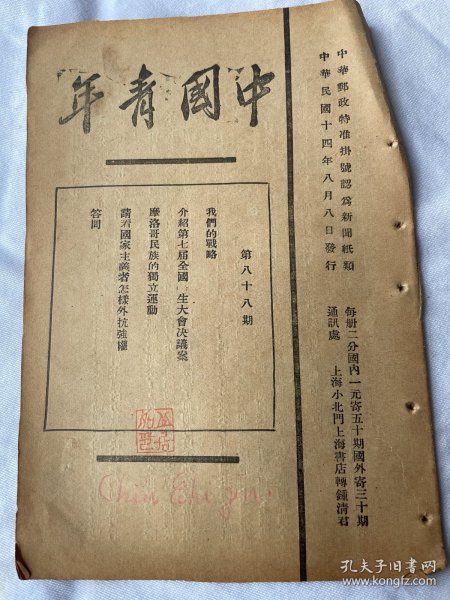 中華郵政特准掛號認為新聞紙類
中華民國十四年八月八日發行
每冊二分國內一元寄五十期國外寄三十期
通訊處 上海小北門上海書店轉鍾清君
中國青年
第八十八期
我們的戰略
介紹第七屆全國 生大會决議案
摩洛哥民族的獨立運動
請看國家主義者怎樣外抗強權
答問
孔夫子旧书网
www.kongfz.com